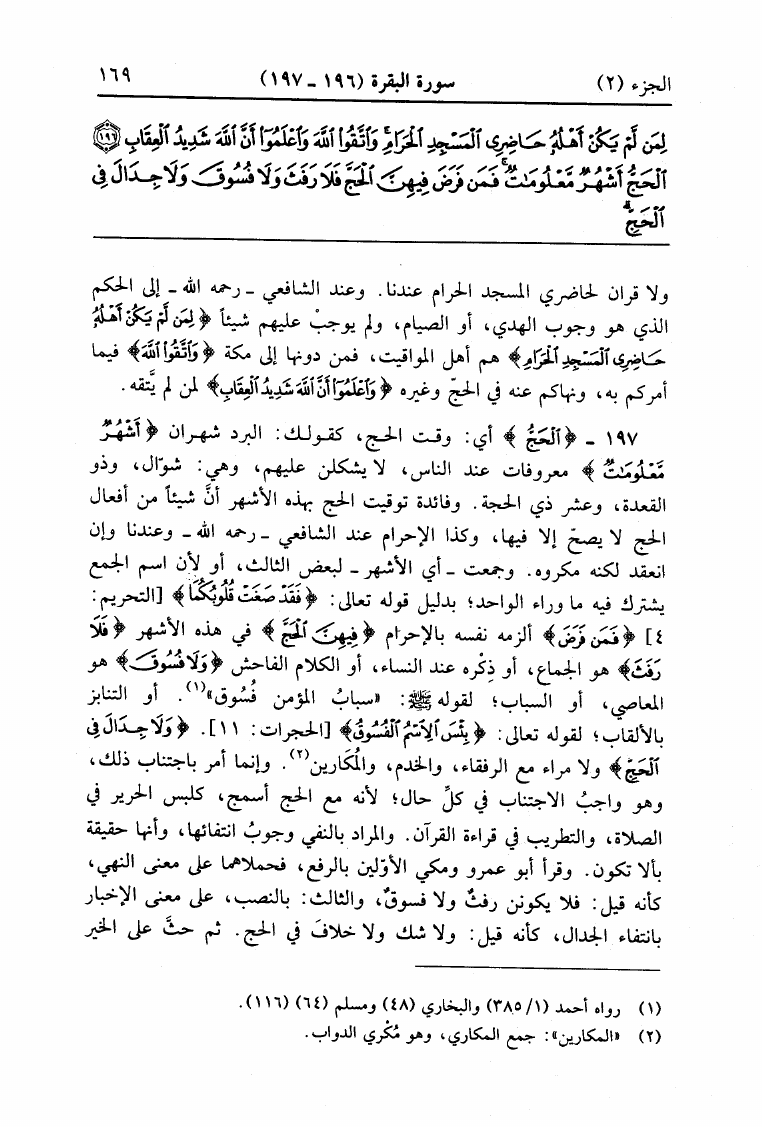 الجزء (٢) سورة البقرة (١٩٦ ـ ١٩٧) ١٦٩
لِمَن لَّمْ يَكُنْ أَهْلُهُ حَاضِرِى ٱلْمَسْجِدِ ٱلْحَرَامِ ۚ وَٱتَّقُوا۟ ٱللَّهَ وَٱعْلَمُوٓا۟ أَنَّ ٱللَّهَ شَدِيدُ ٱلْعِقَابِ ١٩٦
ٱلْحَجُّ أَشْهُرٌ مَّعْلُومَٰتٌ ۚ فَمَن فَرَضَ فِيهِنَّ ٱلْحَجَّ فَلَا رَفَثَ وَلَا فُسُوقَ وَلَا جِدَالَ فِى
ٱلْحَجِّ ۗ
ولا قران لحاضري المسجد الحرام عندنا. وعند الشافعي ـ رحمه الله ـ إلى الحكم
الذي هو وجوب الهدي، أو الصيام، ولم يوجبْ عليهم شيئاً ﴿لِمَن لَّمْ يَكُنْ أَهْلُهُ
حَاضِرِى ٱلْمَسْجِدِ ٱلْحَرَامِ﴾ هم أهل المواقيت، فمن دونها إلى مكة ﴿وَٱتَّقُوا۟ ٱللَّهَ﴾ فيما
أمركم به، ونهاكم عنه في الحجّ وغيره ﴿وَٱعْلَمُوٓا۟ أَنَّ ٱللَّهَ شَدِيدُ ٱلْعِقَابِ﴾ لمن لم يتَّقه.
١٩٧ ـ ﴿ٱلْحَجُّ﴾ أي: وقت الحج، كقولك: البرد شهران ﴿أَشْهُرٌ
مَّعْلُومَٰتٌ﴾ معروفات عند الناس، لا يشكلن عليهم، وهي: شوّال، وذو
القعدة، وعشر ذي الحجة. وفائدة توقيت الحج بهذه الأشهر أنَّ شيئاً من أفعال
الحج لا يصحّ إلا فيها، وكذا الإحرام عند الشافعي ـ رحمه الله ـ وعندنا وإن
انعقد لكنه مكروه. وجمعت ـ أي الأشهر ـ لبعض الثالث، أو لأن اسم الجمع
يشترك فيه ما وراء الواحد؛ بدليل قوله تعالى: ﴿فَقَدْ صَغَتْ قُلُوبُكُمَا﴾ [التحريم:
٤] ﴿فَمَن فَرَضَ﴾ ألزمه نفسه بالإحرام ﴿فِيهِنَّ ٱلْحَجَّ﴾ في هذه الأشهر ﴿فَلَا
رَفَثَ﴾ هو الجماع، أو ذِكْره عند النساء، أو الكلام الفاحش ﴿وَلَا فُسُوقَ﴾ هو
المعاصي، أو السباب؛ لقوله ﷺ: «سبابُ المؤمن فُسُوق»(١). أو التنابز
بالألقاب؛ لقوله تعالى: ﴿بِئْسَ ٱلِٱسْمُ ٱلْفُسُوقُ﴾ [الحجرات: ١١]. ﴿وَلَا جِدَالَ فِى
ٱلْحَجِّ﴾ ولا مراء مع الرفقاء، والخدم، والمُكَارين(٢). وإنما أمر باجتناب ذلك،
وهو واجبُ الاجتناب في كلِّ حال؛ لأنه مع الحج أسمج، كلبس الحرير في
الصلاة، والتطريب في قراءة القرآن. والمراد بالنفي وجوبُ انتفائها، وأنها حقيقة
بألا تكون. وقرأ أبو عمرو ومكي الأوّلين بالرفع، فحملاهما على معنى النهي،
كأنه قيل: فلا يكونن رفثٌ ولا فسوقٌ، والثالث: بالنصب، على معنى الإخبار
بانتفاء الجدال، كأنه قيل: ولا شك ولا خلافَ في الحج. ثم حثَّ على الخير
(١) رواه أحمد (١/ ٣٨٥) والبخاري (٤٨) ومسلم (٦٤) (١١٦).
(٢) «المكارين»: جمع المكاري، وهو مُكْري الدواب.